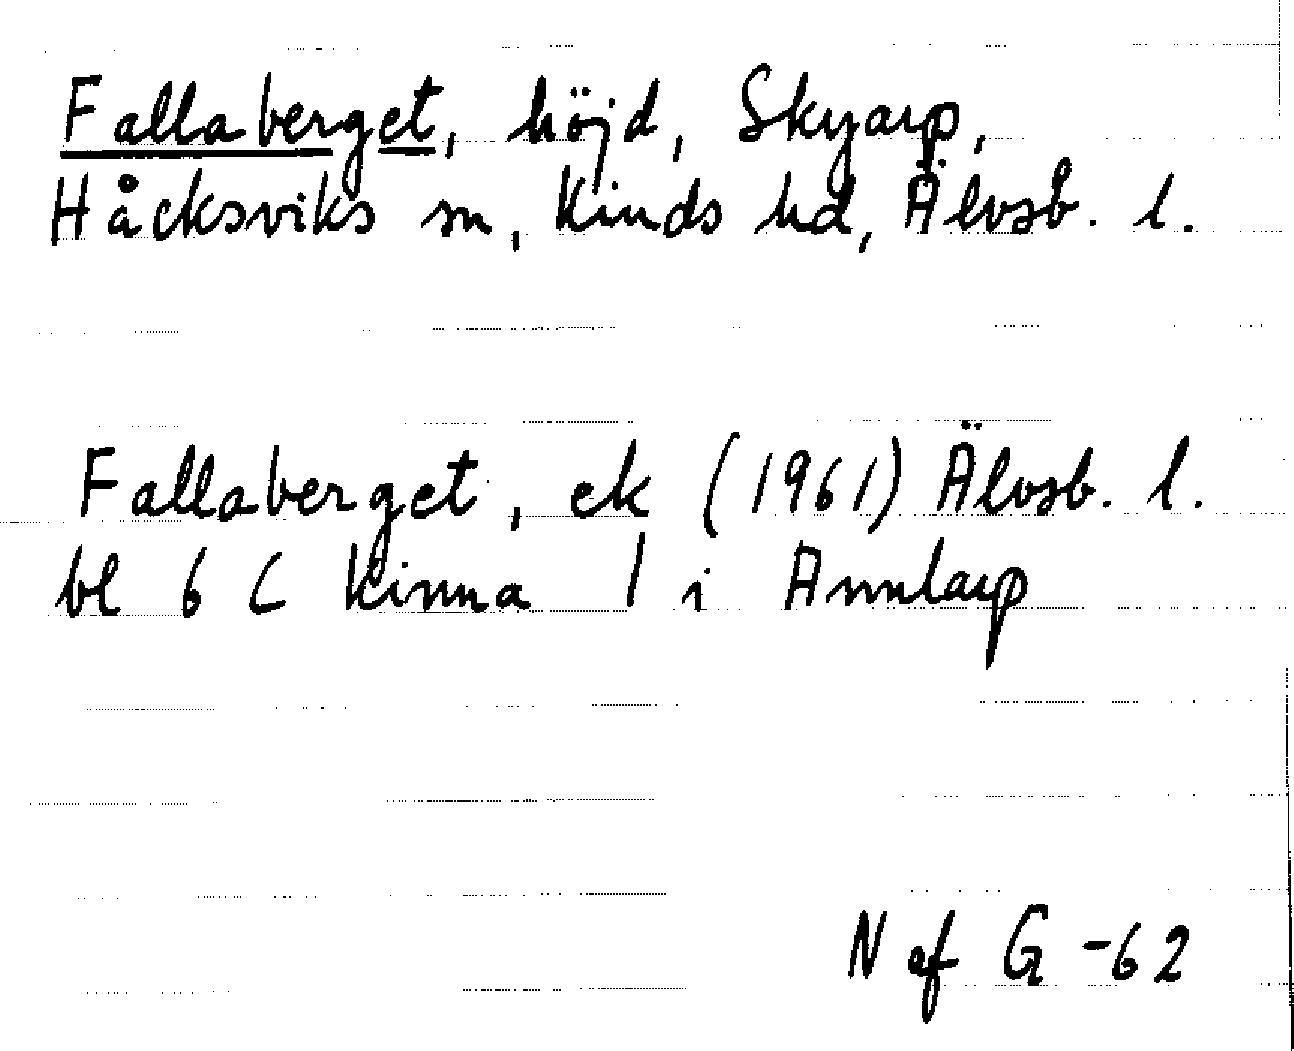 Fallaberget, höjd, Skyarp,
Håcksviks sn, Kinds hd, Älvsb. l.
Fallaberget, ek (1961) Älvsb. l.
bl 6 C Kinna 1 i Annlarp
N ef G -62